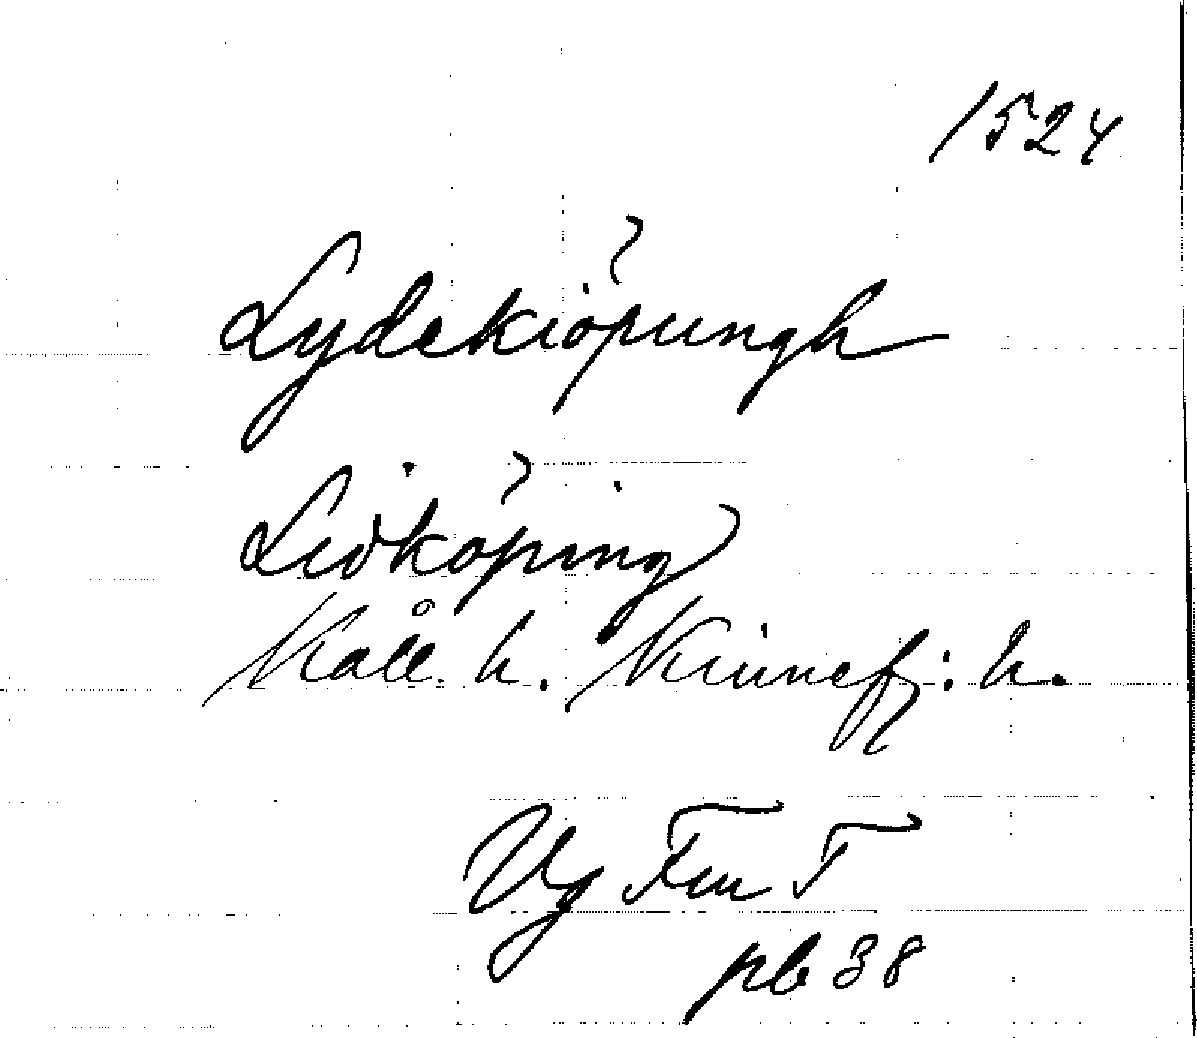 1524
Lydekiöpungh
Lidköping
Kåll. h. Kinnef: h.
Vg Fur T
pb 38